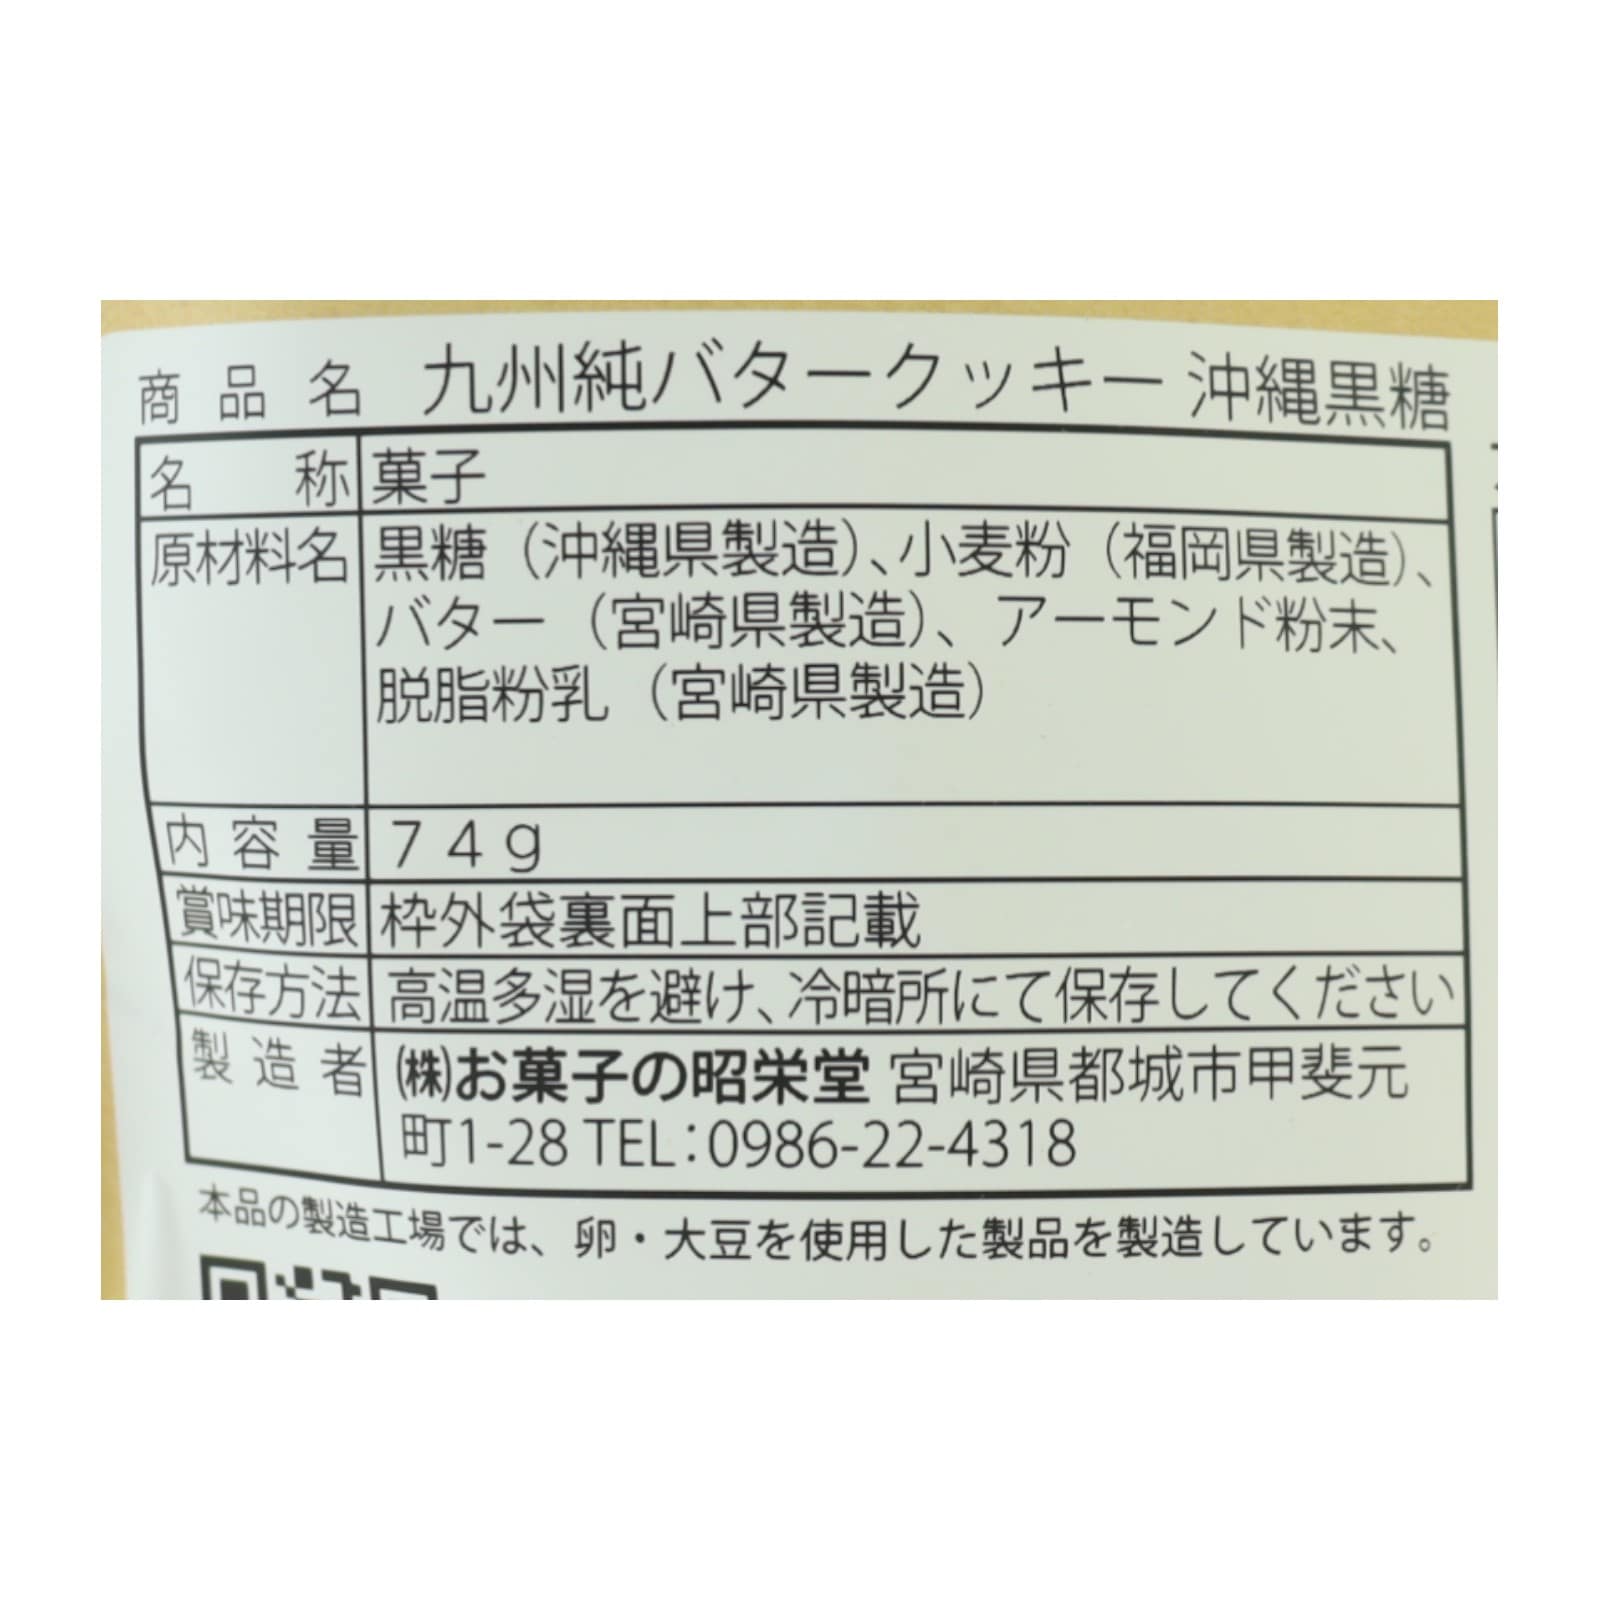 商品名 九州純バタークッキー 沖縄黒糖
名称 菓子
原材料名 黒糖（沖縄県製造）、小麦粉（福岡県製造）、
バター（宮崎県製造）、アーモンド粉末、
脱脂粉乳（宮崎県製造）
内容量 74g
賞味期限 枠外袋裏面上部記載
保存方法 高温多湿を避け、冷暗所にて保存してください
製造者 ㈱お菓子の昭栄堂 宮崎県都城市甲斐元
町1-28 TEL：0986-22-4318
本品の製造工場では、卵・大豆を使用した製品を製造しています。